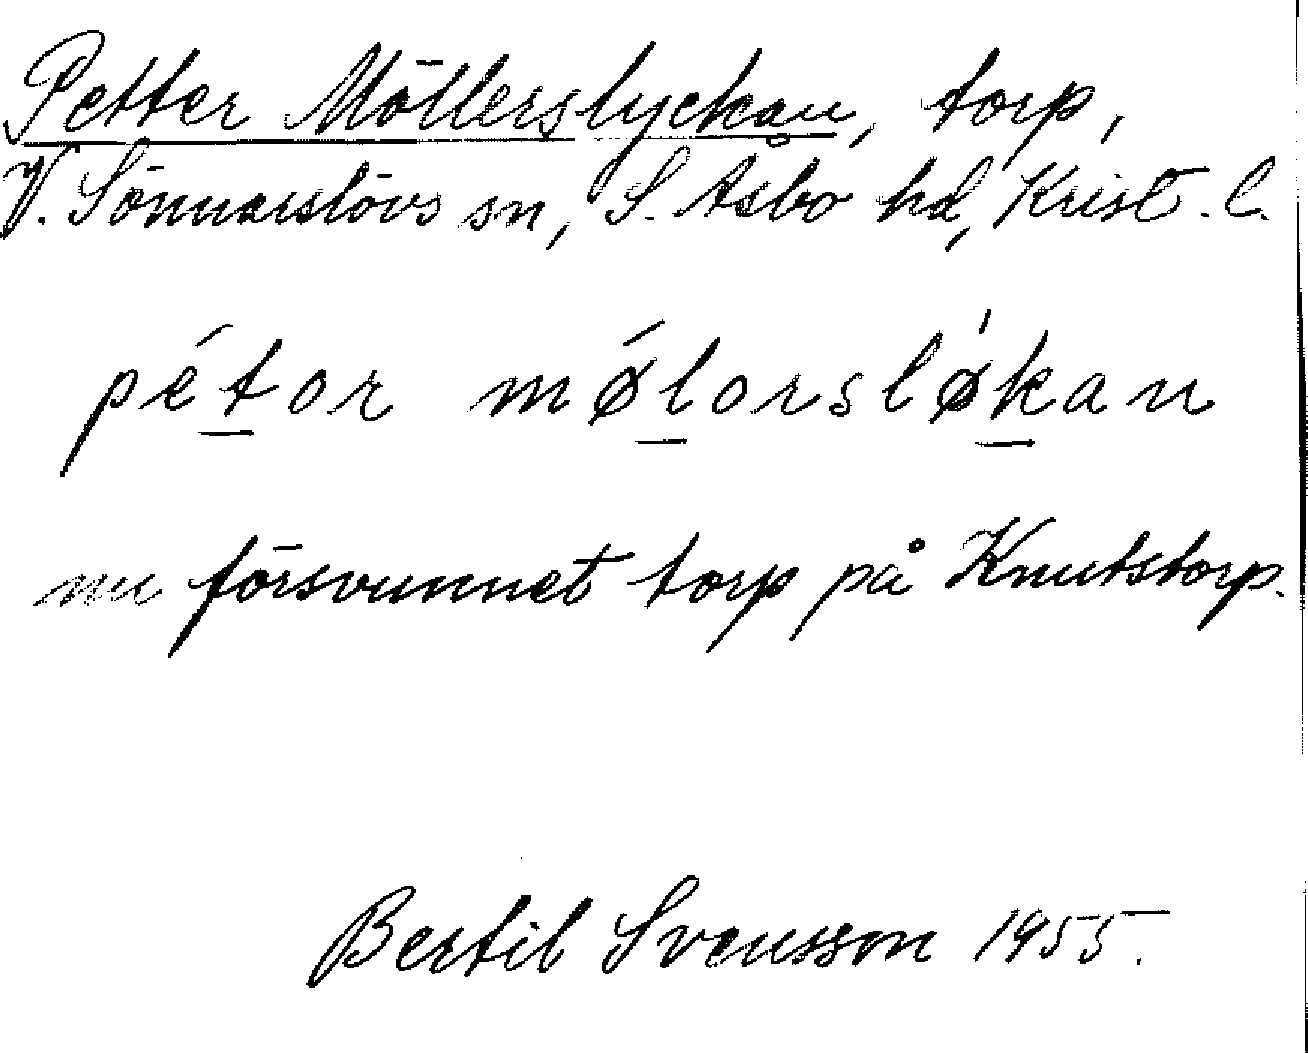 Petter Möllerslyckan, torp,
V. Sönnarslövs sn, S. Åsbo hd, Krist. l.
pétor mǿlorslǿkan
nu försvunnet torp på Knutstorp.
Bertil Svensson 1955.